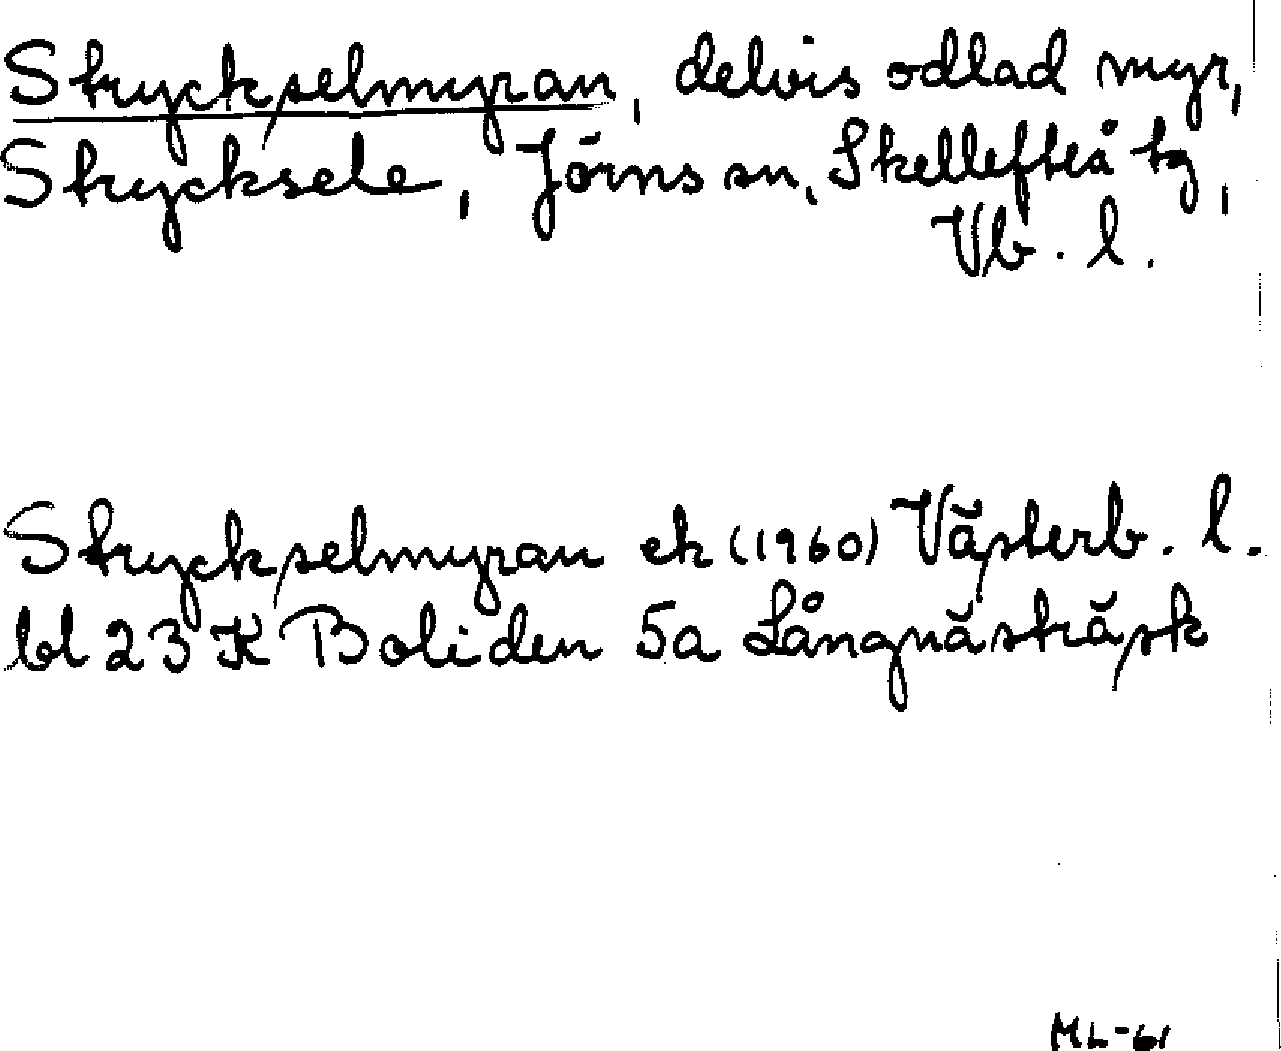 Stryckselmyran, delvis odlad myr,
Strycksele, Jörns sn, Skellefteå tg,
Vb. l.
Stryckselmyran ek (1960) Västerb. l.
bl 23 K Boliden 5a Långnästräsk
ML-61